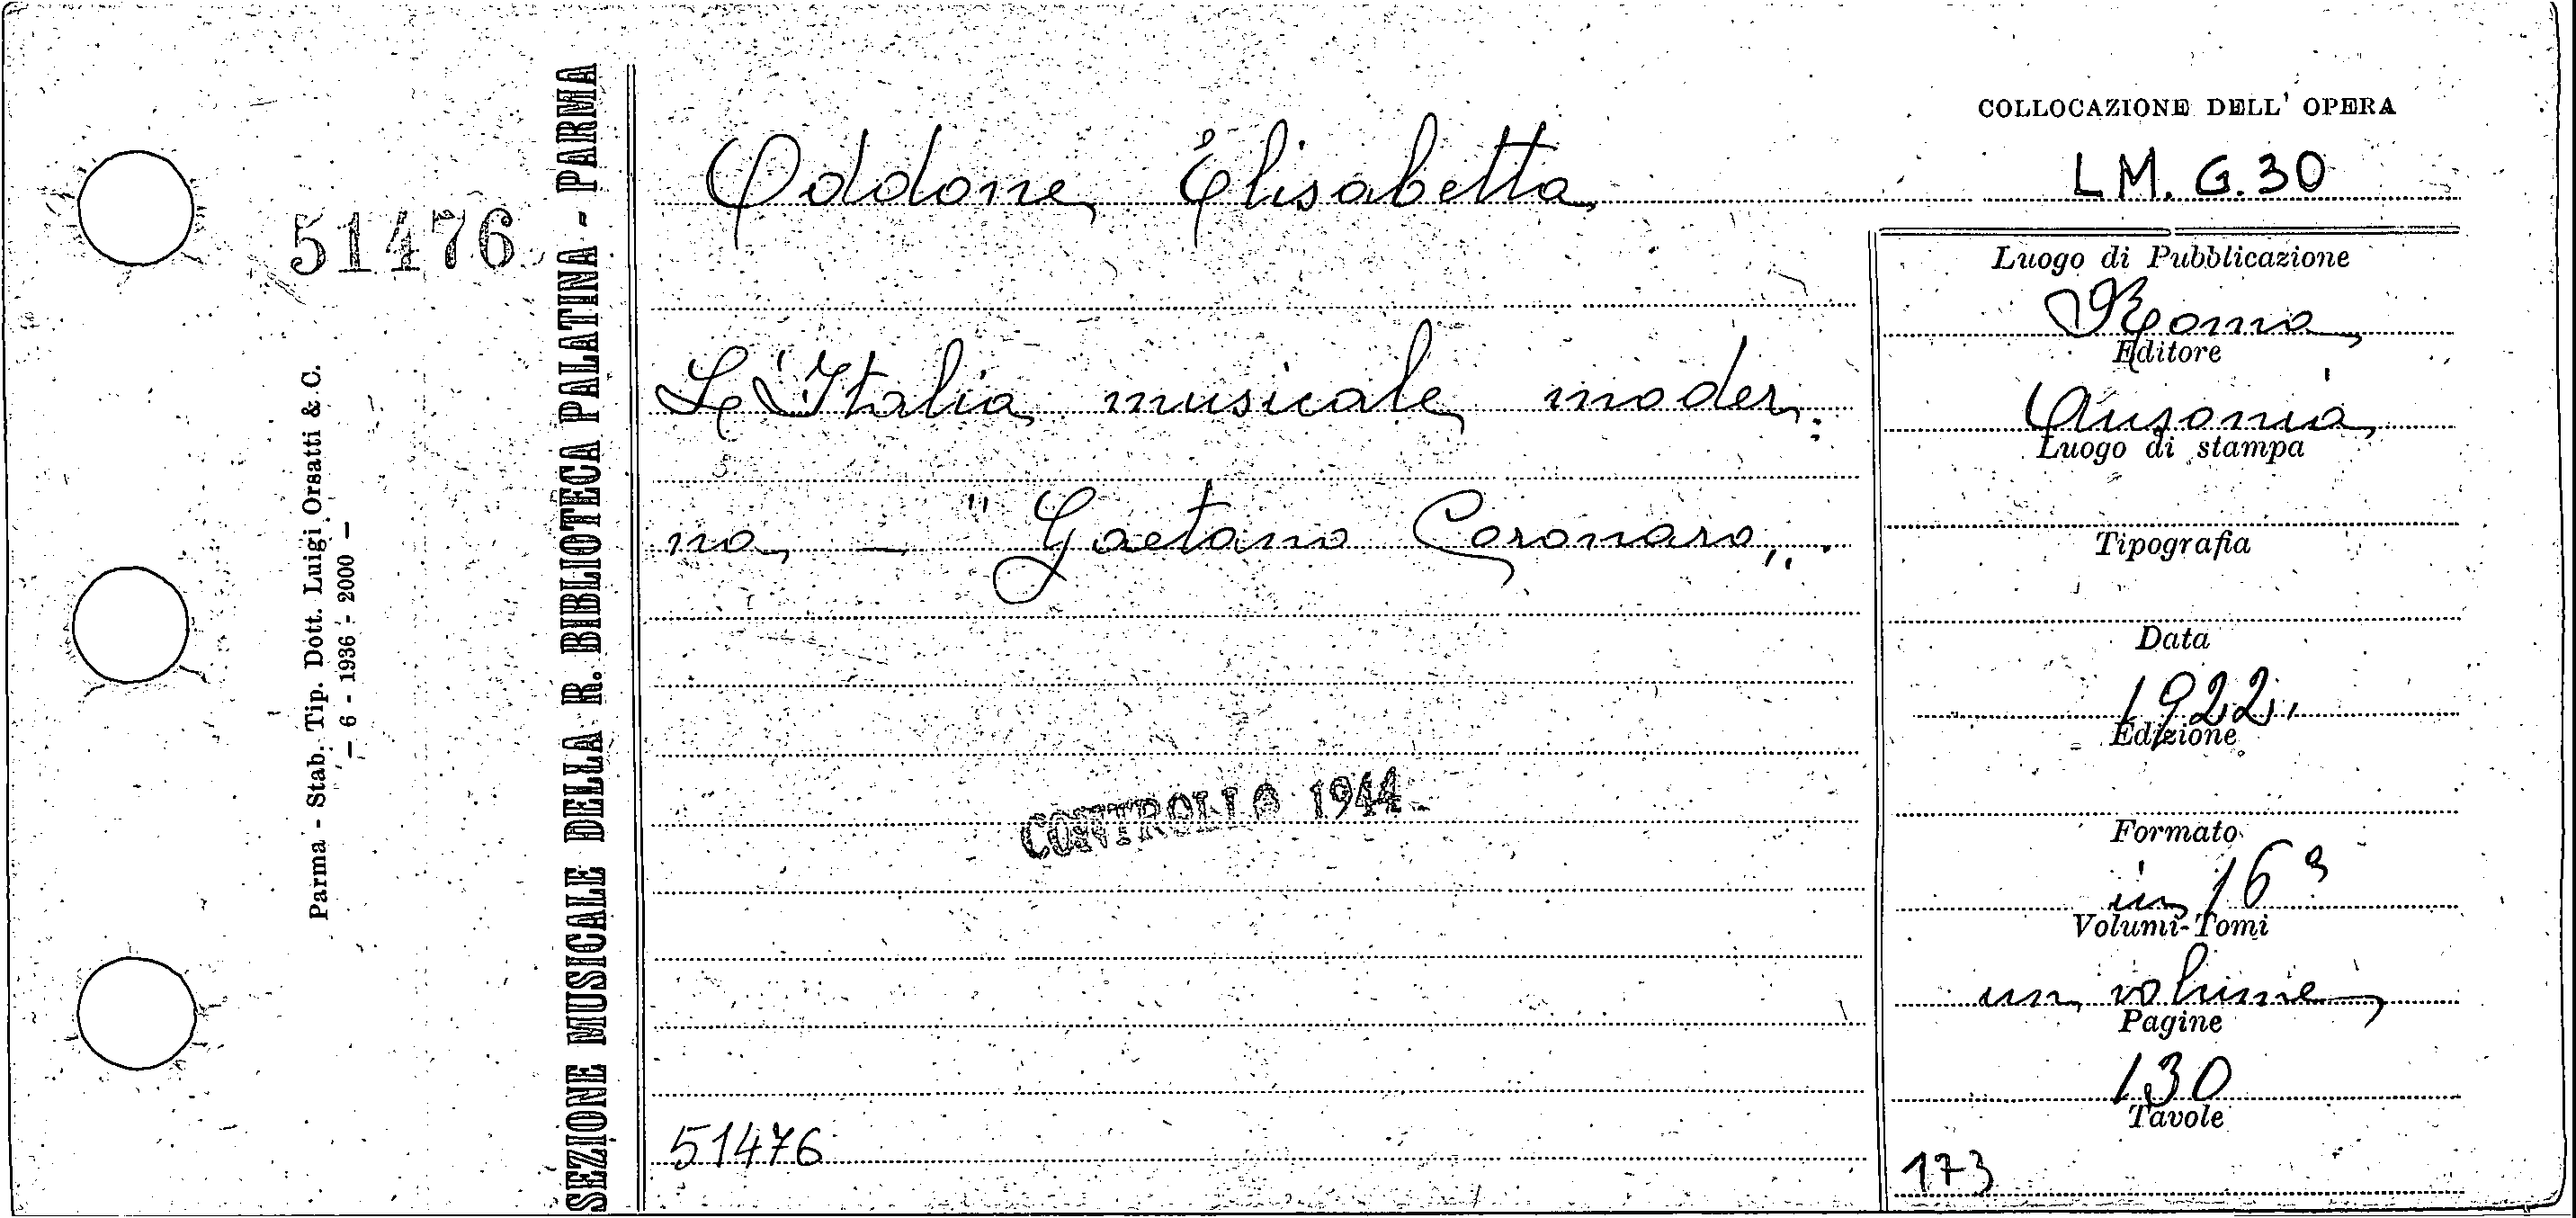 51476
Parma - Stab. Tip. Dott. Luigi Orsatti & C.
— 6 - 1936 - 2000 —
SEZIONE MUSICALE DELLA R. BIBLIOTECA PALATINA - PARMA
Oddone Elisabetta
L'Italia musicale moder:
na - "Gaetano Coronaro„.
CONTROLLO 1944
51476
COLLOCAZIONE DELL' OPERA
LM. G.30
Luogo di Pubblicazione
Roma
Editore
Ausonia
Luogo di stampa
Tipografia
Data
1922.
Edizione
Formato
in 16°
Volumi-Tomi
un volume
Pagine
130
Tavole
173